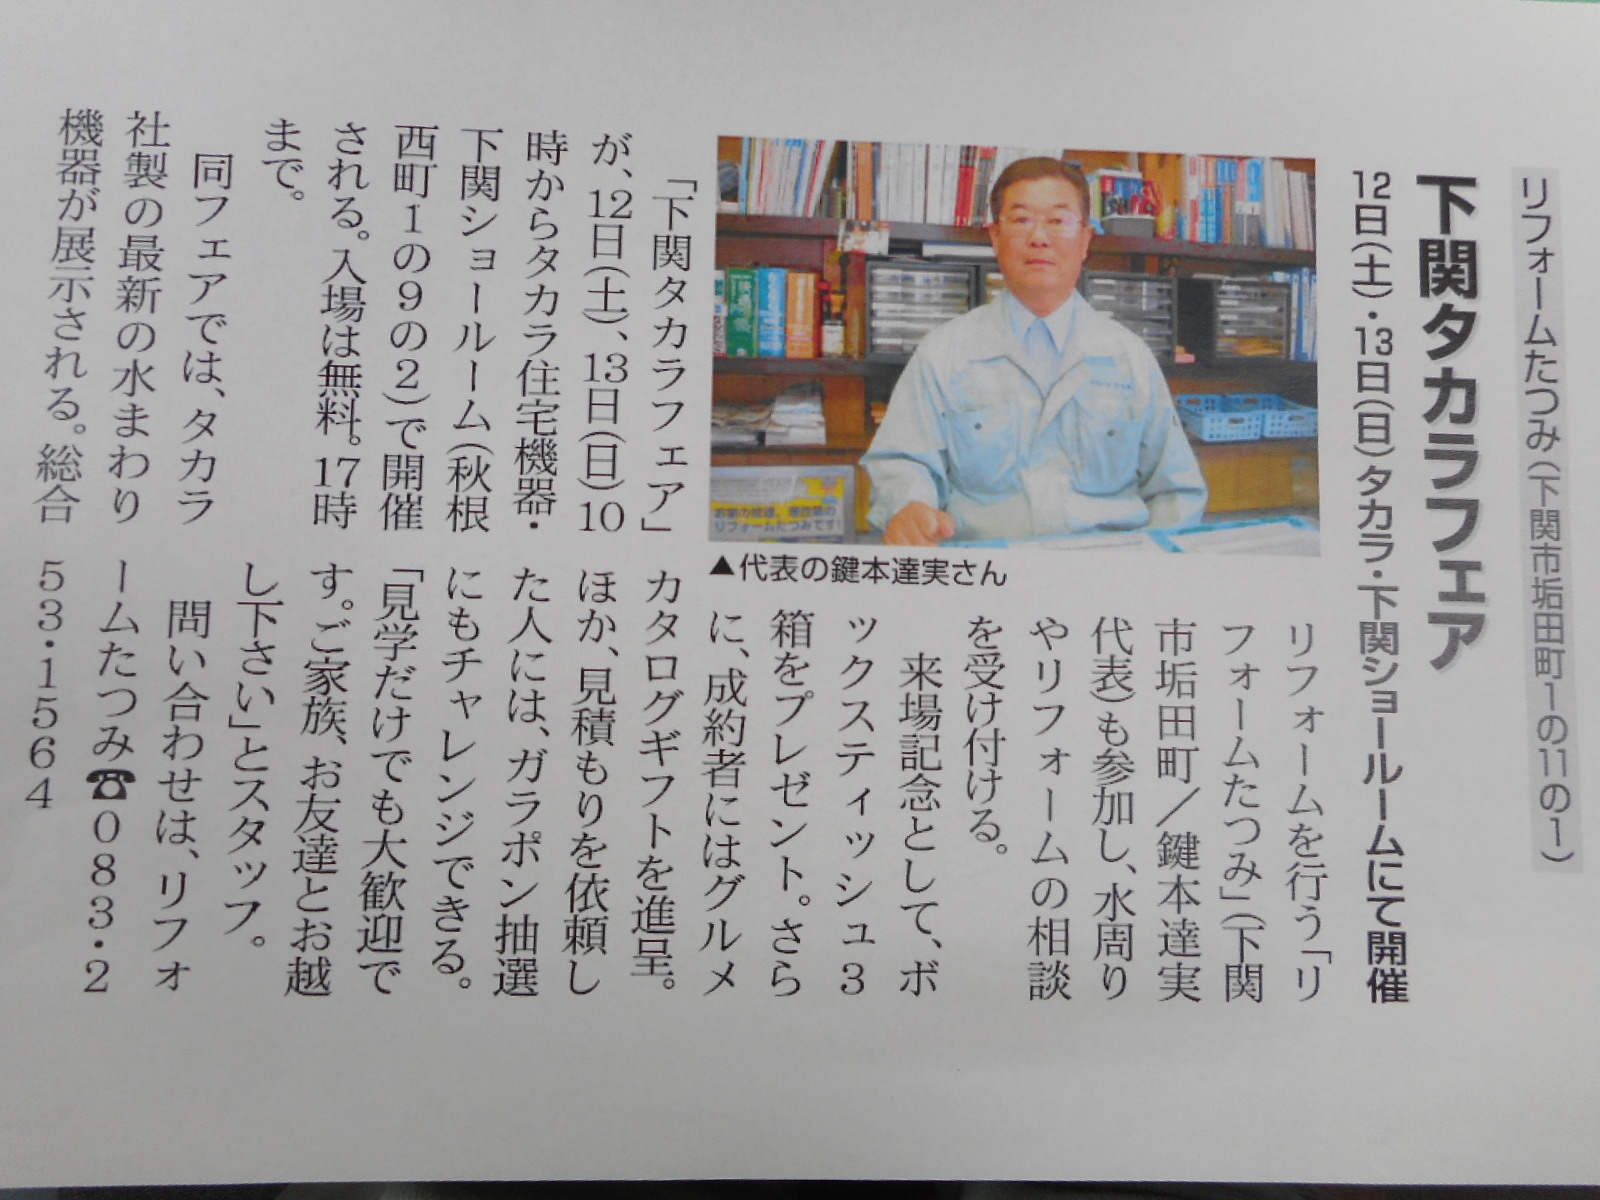 リフォームたつみ（下関市垢田町1の11の1）
下関タカラフェア
12日（土）・13日（日）タカラ・下関ショールームにて開催
▲代表の鍵本達実さん
お家の修理、増改築の
リフォームたつみです!
「下関タカラフェア」
が、12日（土）、13日（日）10
時からタカラ住宅機器・
下関ショールーム（秋根
西町1の9の2）で開催
される。入場は無料。17時
まで。
同フェアでは、タカラ
社製の最新の水まわり
機器が展示される。総合
リフォームを行う「リ
フォームたつみ」（下関
市垢田町／鍵本達実
代表）も参加し、水周り
やリフォームの相談
を受け付ける。
来場記念として、ボ
ックスティッシュ3
箱をプレゼント。さら
に、成約者にはグルメ
カタログギフトを進呈。
ほか、見積もりを依頼し
た人には、ガラポン抽選
にもチャレンジできる。
「見学だけでも大歓迎で
す。ご家族、お友達とお越
し下さい」とスタッフ。
問い合わせは、リフォ
ームたつみ☎083・2
53・1564